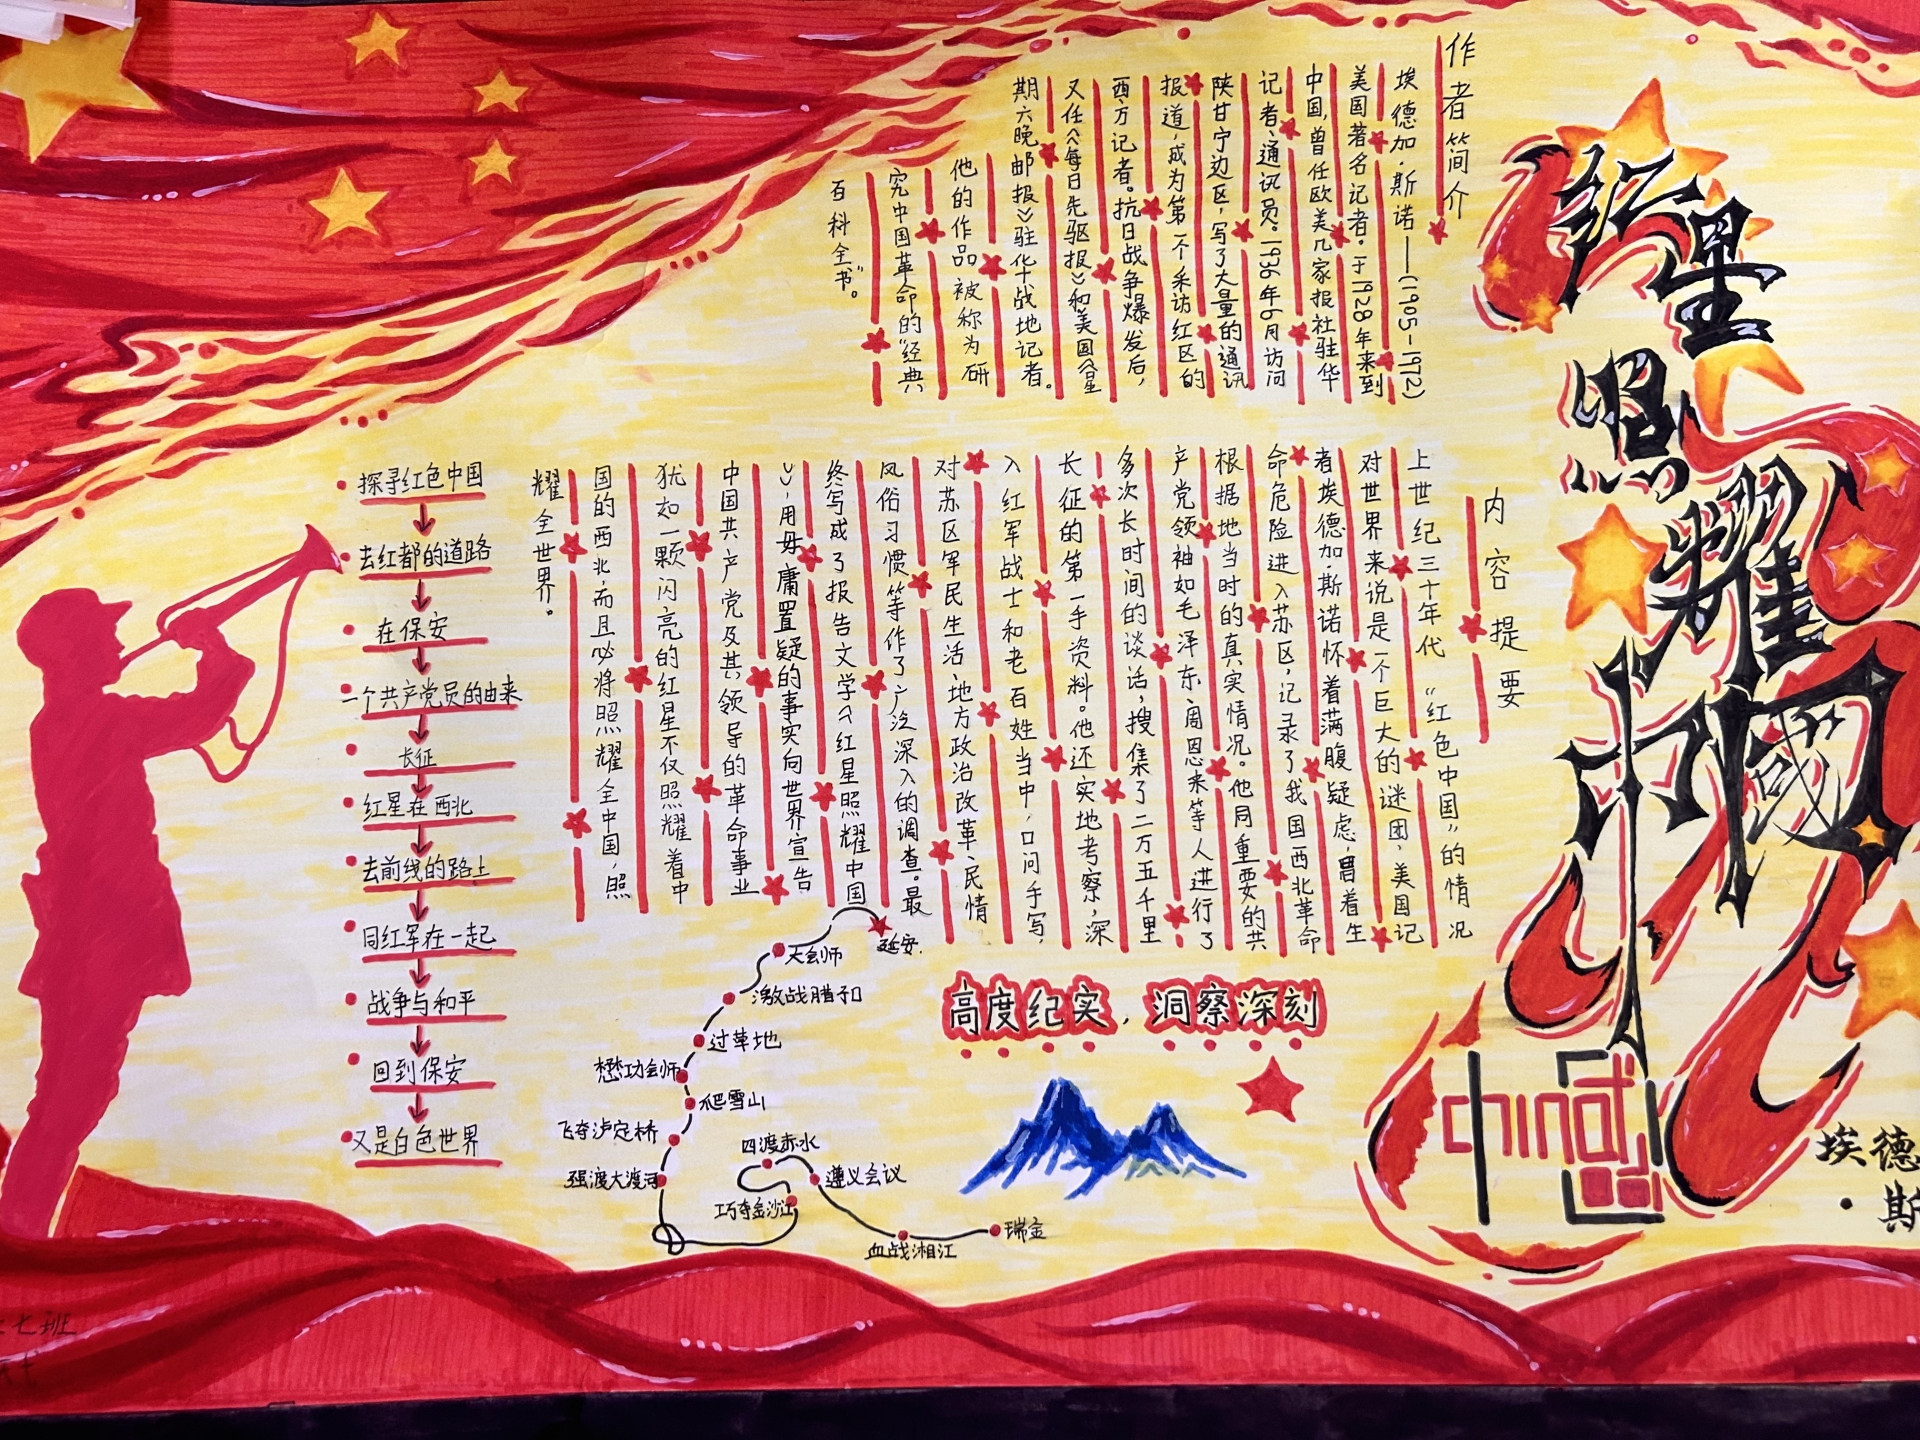 红星照耀中國
埃德
·斯
china
作者简介
埃德加·斯诺——(1905-1972)
美国著名记者。于1928年来到
中国,曾任欧美几家报社驻华
记者、通讯员。1936年6月访问
陕甘宁边区,写了大量的通讯
报道,成为第一个采访红区的
西方记者。抗日战争爆发后,
又任《每日先驱报》和美国《星
期六晚邮报》驻华战地记者。
他的作品被称为研
究中国革命的“经典
百科全书”。
内容提要
上世纪三十年代“红色中国”的情况
对世界来说是一个巨大的谜团,美国记
者埃德加·斯诺怀着满腹疑虑冒着生
命危险进入苏区,记录了我国西北革命
根据地当时的真实情况。他同重要的共
产党领袖如毛泽东、周恩来等人进行了
多次长时间的谈话,搜集了二万五千里
长征的第一手资料。他还实地考察,深
入红军战士和老百姓当中,口问手写,
对苏区军民生活、地方政治改革、民情
风俗习惯等作了广泛深入的调查。最
终写成了报告文学《红星照耀中国
》,用毋庸置疑的事实向世界宣告
中国共产党及其领导的革命事业
犹如一颗闪亮的红星不仅照耀着中
国的西北,而且必将照耀全中国,照
耀全世界。
高度纪实,洞察深刻
探寻红色中国
去红都的道路
在保安
一个共产党员的由来
长征
红星在西北
去前线的路上
同红军在一起
战争与和平
回到保安
又是白色世界
延安
大会师
激战腊子口
过草地
懋功会师
爬雪山
飞夺泸定桥
强渡大渡河
四渡赤水
遵义会议
巧夺金沙江
血战湘江
瑞金
七班